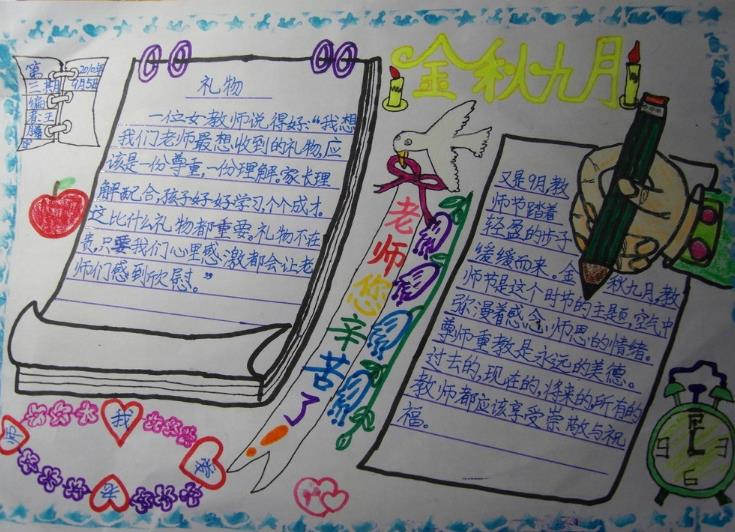 金秋九月
第三期
2010年
9月5日
编者:王
礼物
一位女教师说得好:“我想
我们老师最想收到的礼物,应
该是一份尊重,一份理解。家长理
解配合,孩子好好学习,个个成才。
这比什么礼物都重要。礼物不在
贵,只要我们心里感激都会让老
师们感到欣慰。”
老师您辛苦了
又是9月,教
师节踏着
轻盈的步子
缓缓而来。金秋九月,教
师节是这个时节的主题,空气中
弥漫着感念师恩的情绪。
尊师重教是永远的美德。
过去的,现在的,将来的,所有的
教师都应该享受崇敬与祝
福。
我